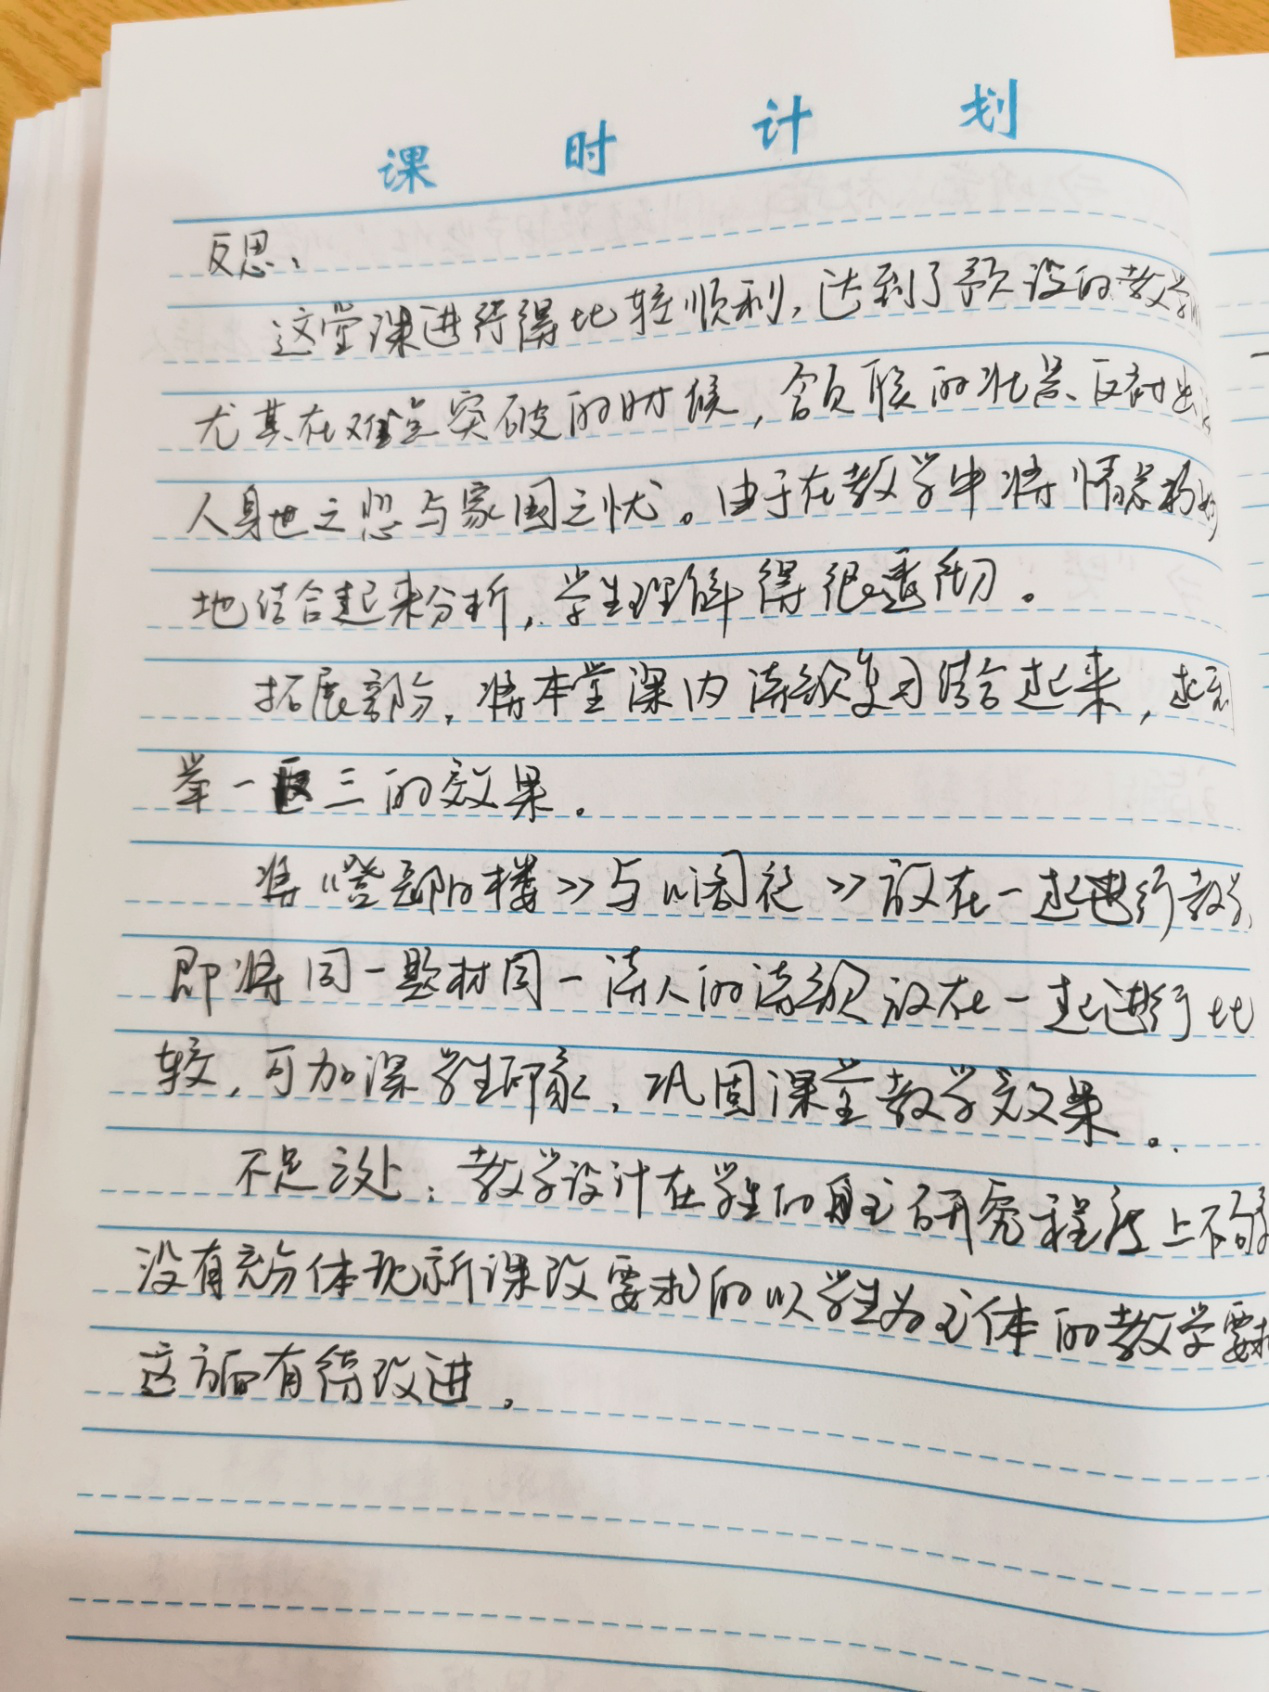 课时计划
反思:
这堂课进行得比较顺利,达到了预设的教学
尤其在难点突破的时候,颔联的壮景、反衬出
人身世之悲与家国之忧。由于在教学中将情景
地结合起来分析,学生理解得很透彻。
拓展部分,将本堂课内诗歌复习结合起来,起到
举一反三的效果。
将《登岳阳楼》与《阁夜》放在一起进行教学,
即将同一题材同一诗人的诗歌放在一起进行比
较,可加深学生印象,巩固课堂教学效果。
不足之处:教学设计在学生的自主研究程度上不够
没有充分体现新课改要求的以学生为主体的教学要求
这方面有待改进。